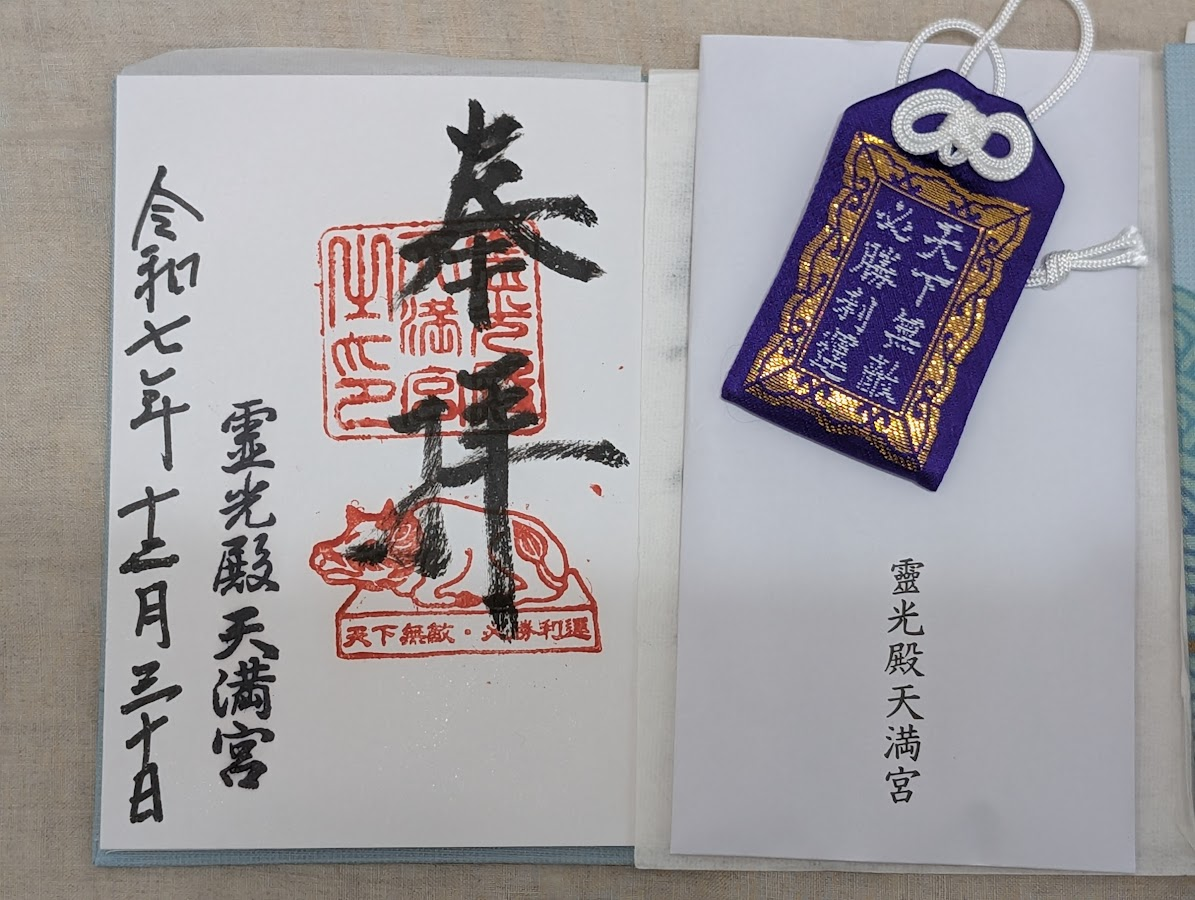 奉拝
靈光殿天満宮
之印
天下無敵・必勝利運
靈光殿天満宮
令和七年十二月三十日
天下無敵
必勝利運
靈光殿天満宮